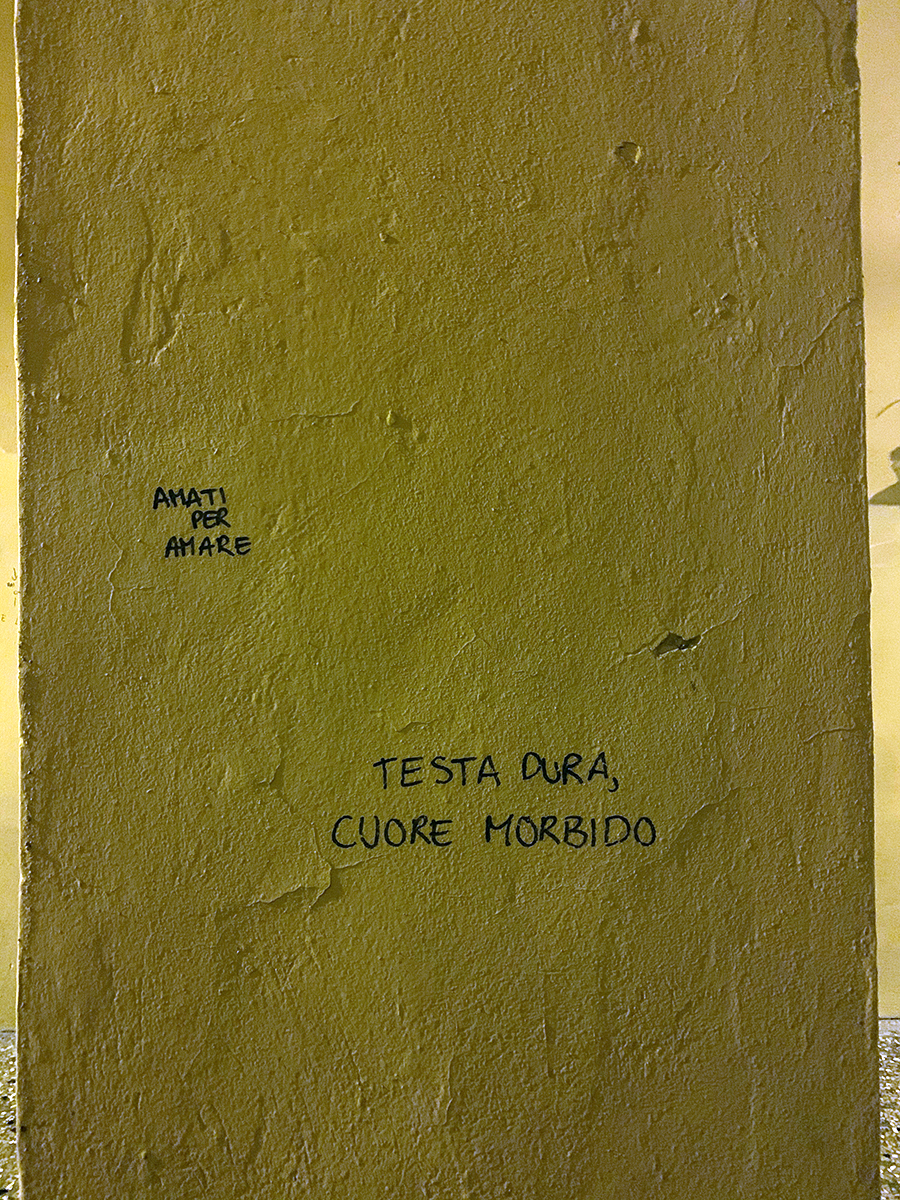 AMATI
PER
AMARE
TESTA DURA,
CUORE MORBIDO